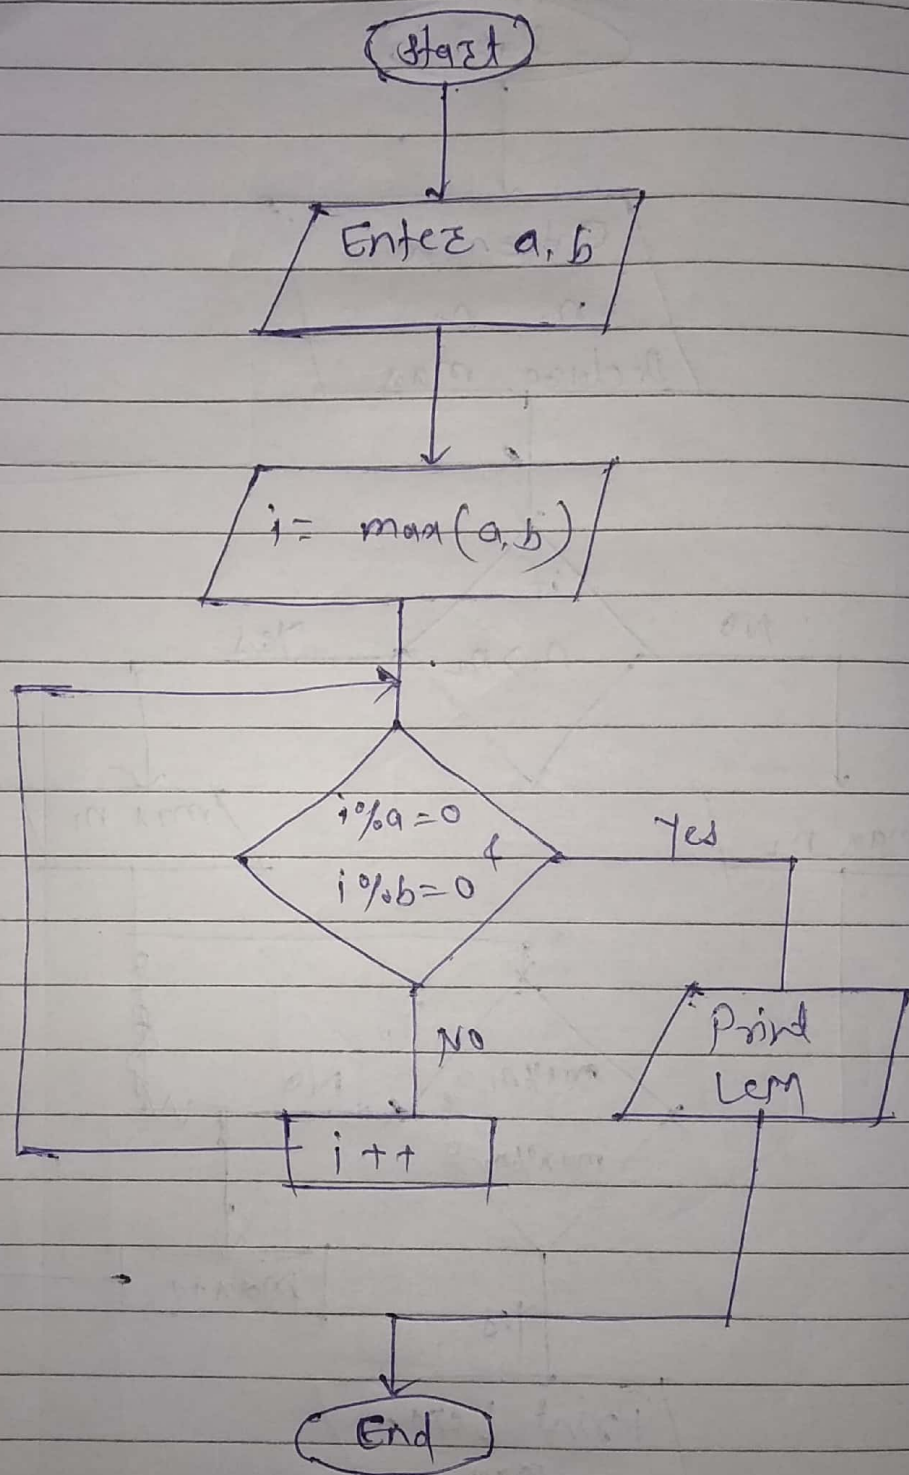 Start
Enter a, b
i = max(a, b)
i%a=0
&
i%b=0
Yes
No
Print
LCM
i++
End